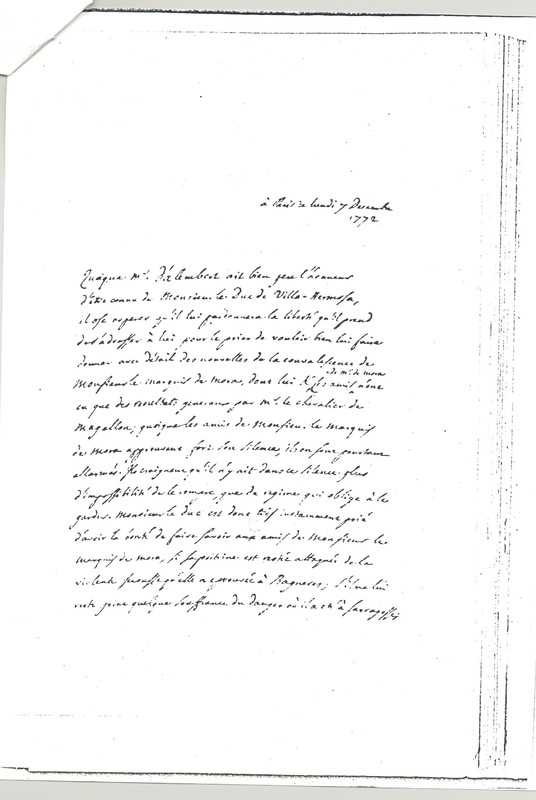 à Paris ce lundi 7 Decembre
1772
Quoique mr. D'Alembert ait bien peu l'honneur
d'être connu de Monsieur le Duc de Villa-Hermosa,
il ose esperer qu'il lui pardonnera la liberté qu'il prend
de s'adresser à lui pour le prier de vouloir bien lui faire
donner avec détail des nouvelles de la convalescence de
Monsieur le marquis de mora, dont lui & les amis de mr. de mora n'ont
eu que des resultats generaux par mr. le chevalier de
magallon; quoique les amis de Monsieur le marquis
de mora approuvent fort son silence, ils en sont pourtant
allarmés. Ils craignent qu'il n'y ait dans ce silence plus
d'impossibilité de le rompre, que de regime qui oblige à le
garder. Monsieur le duc est donc très instamment prié
d'avoir la bonté de faire savoir aux amis de Monsieur le
marquis de mora, si sa poitrine est restée attaquée de la
violente secousse qu'elle a eprouvée à Bagneres; s'il ne lui
reste point quelque souffrance du danger où il a été à Sarragosse;